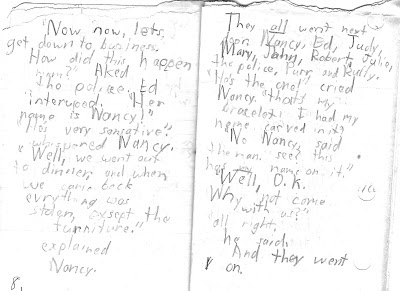 "Now, now, lets
get down to business.
How did this happen
mam?" Asked
The police. Ed
interuped, "Her
name is Nancy!"
"He's very sensative."
whispered Nancy.
"Well, we went out
to dinner, and when
we came back
everything was
stolen, except the
furniture."
explained
Nancy.
8.
They all went next
door Nancy, Ed, Judy,
Mary, John, Robert, Julio,
the police, Purr, and Ruffy.
"He's the one!" cried
Nancy. "that's my
bracelet! I had my
name carved in it?
"No Nancy, said
the man. see? this
has my name on it."
"Well, O.K.
Why not come
with us?"
"all right.
he said.
And they went
on.